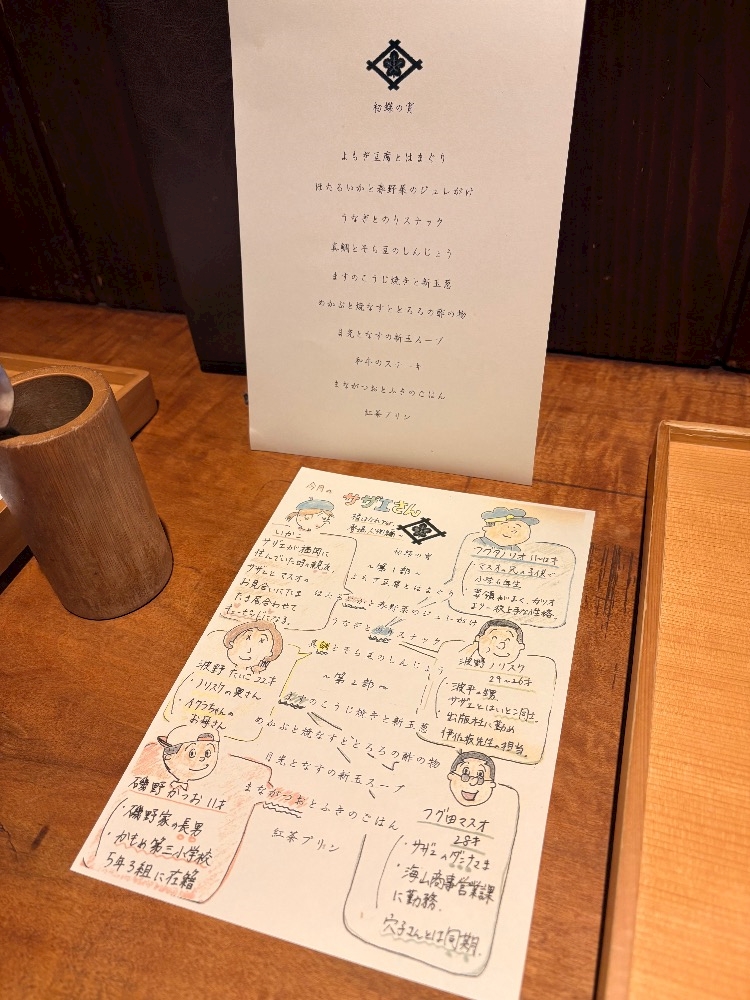 初蝶の宴
よもぎ豆腐とはまぐり
ほたるいかと春野菜のジュレがけ
うなぎとのりスナック
真鯛とそら豆のしんじょう
ますのこうじ焼きと新玉葱
めかぶと焼なすととろろの酢の物
目光となすの新玉スープ
和牛のステーキ
まながつおとふきのごはん
紅茶プリン
今月の
サザエさん
初蝶の宴
〜第1部〜
よもぎ豆腐とはまぐり
ほたるいかと春野菜のジュレがけ
うなぎとのりスナック
真鯛とそら豆のしんじょう
〜第2部〜
ますのこうじ焼きと新玉葱
めかぶと焼なすととろろの酢の物
目光となすの新玉スープ
まながつおとふきのごはん
紅茶プリン
いかこ
サザエが福岡に
住んでいた時の親友。
サザエとマスオの
お見合いにたま
たま居合わせて
フグタノリオ
・マスオの兄の子供で
小学6年生
・要領がよく、カツオ
より一枚上手な性格。
波野 たいこ 22才
・ノリスケの奥さん
・イクラちゃんの
お母さん
波野ノリスケ
29〜26才
・波平の甥。
サザエとはいとこ同士。
出版社に勤め
伊佐坂先生の担当。
磯野かつお 11才
・磯野家の長男
・かもめ第三小学校
5年3組に在籍
フグ田マスオ
28才
・サザエのダンナさま
・海山商事営業課
に勤務。
穴子さんとは同期。